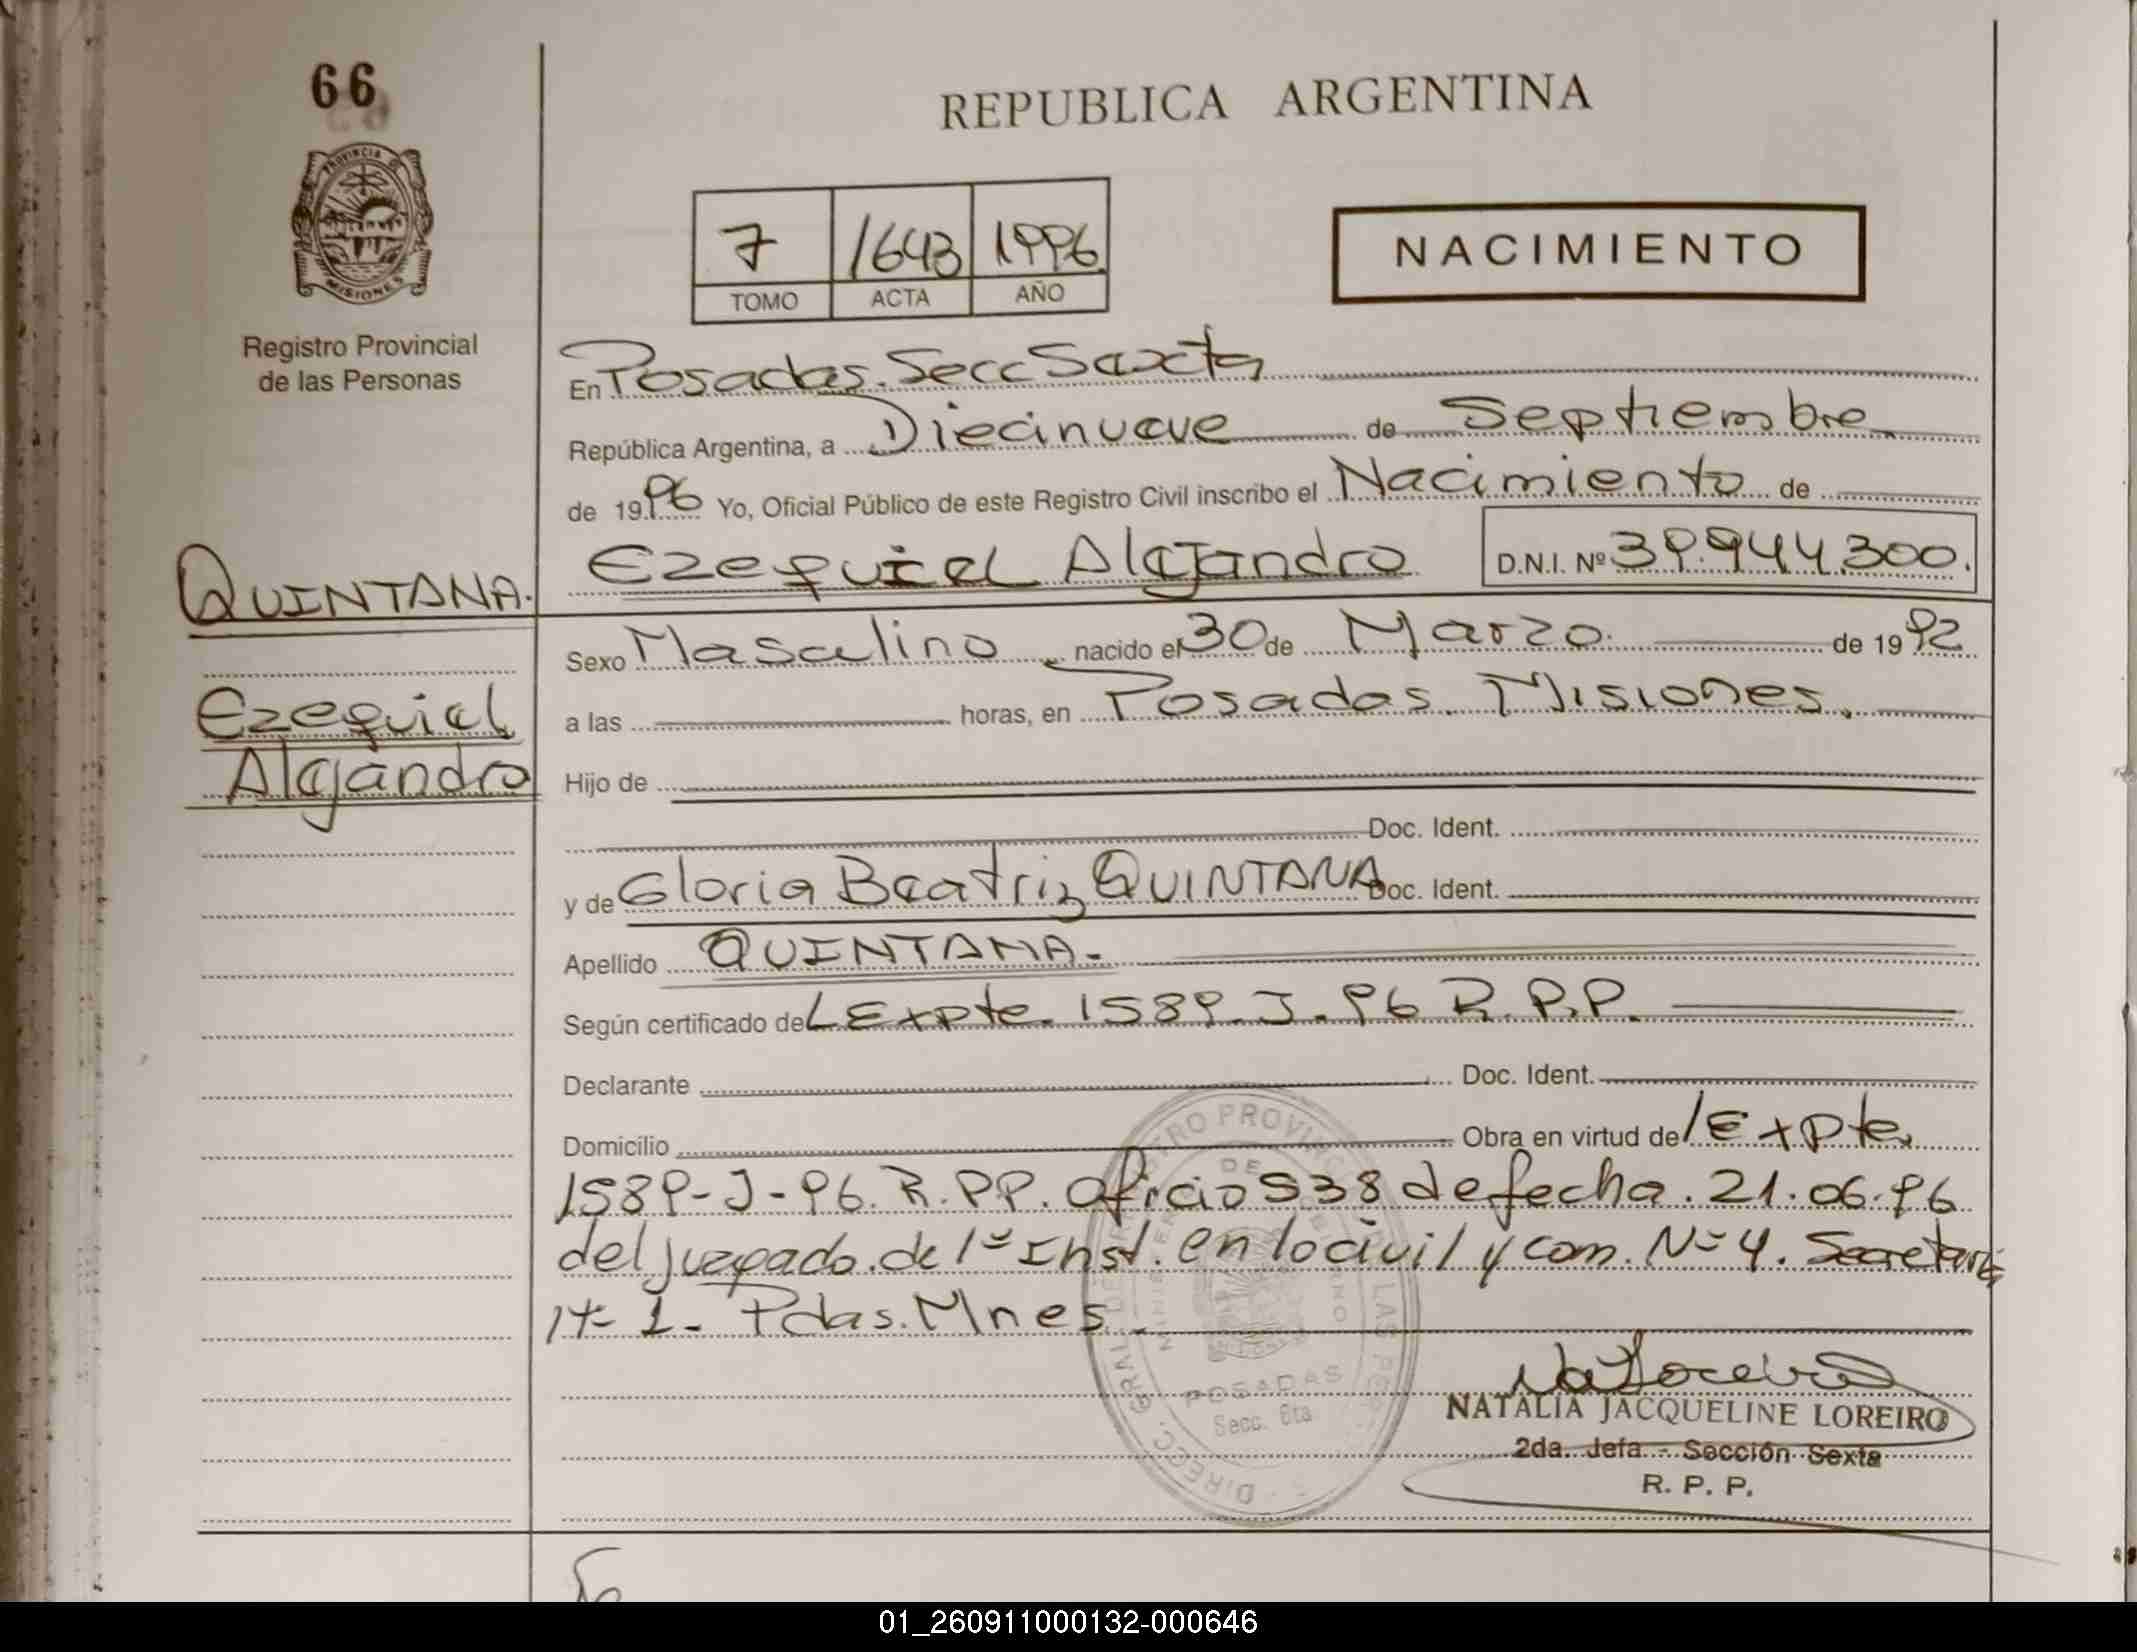 66
REPUBLICA ARGENTINA
PROVINCIA DE
MISIONES
Registro Provincial
de las Personas
7 1643 1996
TOMO ACTA AÑO
NACIMIENTO
En Posadas. Secc Sexta
República Argentina, a Diecinueve de Septiembre
de 1996 Yo, Oficial Público de este Registro Civil inscribo el Nacimiento de
QUINTANA.
Ezequiel Alejandro D.N.I. Nº 39.944.300.
Sexo Masculino nacido el 30 de Marzo. de 1992
Ezequiel
Alejandro
a las horas, en Posadas. Misiones.
Hijo de
Doc. Ident.
y de Gloria Beatriz QUINTANA Doc. Ident.
Apellido QUINTANA.-
Según certificado del Expte. 1589-J-96 R.P.P.
Declarante Doc. Ident.
Domicilio Obra en virtud del Expte
1589-J-96. R.P.P. Oficio 538 de fecha. 21.06.96
del Juzgado. de 1º Inst. en lo civil y com. Nº 4. Secretaria
Nº 1- Pdas. Mnes.
POSADAS
Secc. 6ta
NATALIA JACQUELINE LOREIRO
2da. Jefa - Sección Sexta
R. P. P.
01_260911000132-000646